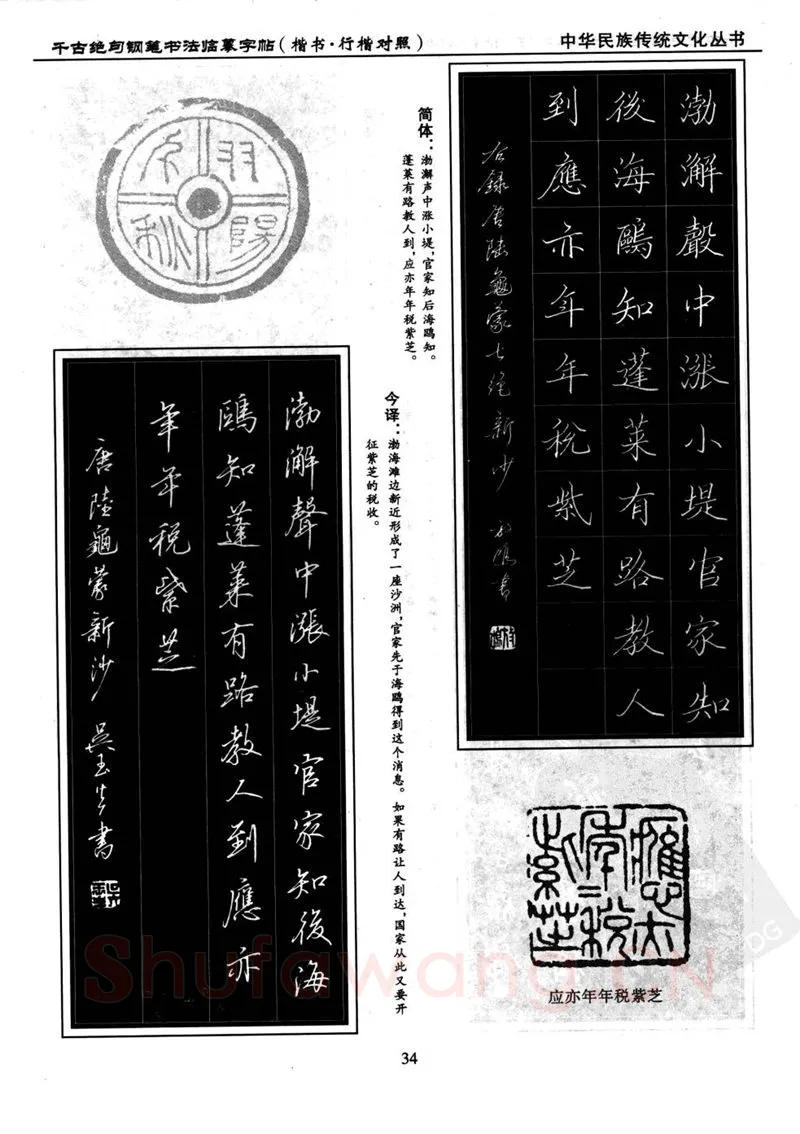 千古绝句钢笔书法临摹字帖(楷书·行楷对照)
中华民族传统文化丛书
渤澥聲中漲小堤官家知
後海鷗知蓬萊有路教人
到應亦年年稅紫芝
右錄唐陸龜蒙七绝新沙
简体:渤澥声中涨小堤,官家知后海鸥知。
蓬莱有路教人到,应亦年年税紫芝。
今译:渤海滩边新近形成了一座沙洲,官家先于海鸥得到这个消息。如果有路让人到达,国家从此又要开
征紫芝的税收。
渤澥聲中漲小堤官家知後海
鷗知蓬萊有路教人到應亦
年年稅紫芝
唐陸龜蒙新沙 吴玉生書
應亦年=稅紫芝
应亦年年税紫芝
Shufawang.CN
34